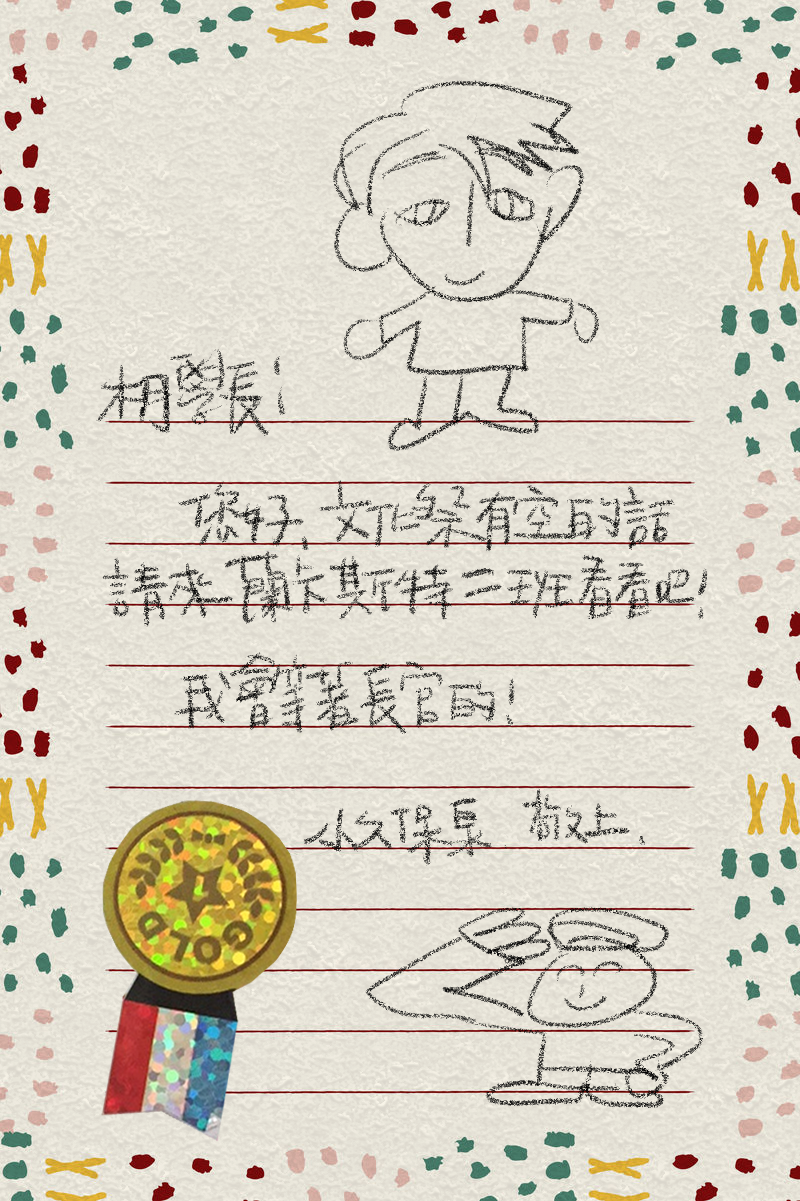 相學長!
您好,文化祭有空的話
請來蘭卡斯特二班看看吧!
我會等著長官的!
小久保臬 敬上.
GOLD